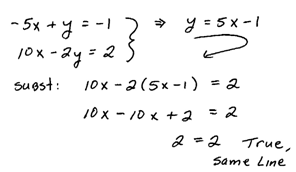 -5x + y = -1 } ⇒ y = 5x - 1
10x - 2y = 2
subst: 10x - 2(5x - 1) = 2
10x - 10x + 2 = 2
2 = 2 True,
same Line